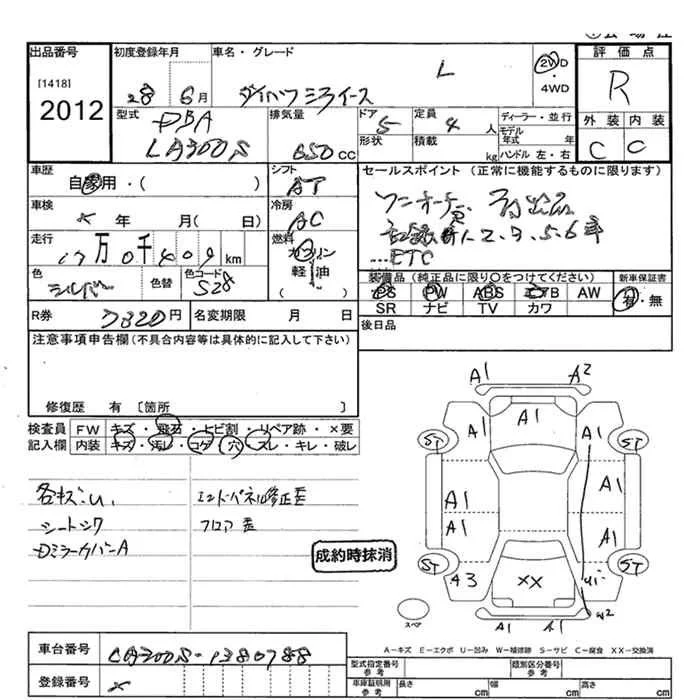 出品番号
初度登録年月
車名・グレード
評価点
[1418]
2012
28年 6月
ダイハツミライース
L
2WD・4WD
R
型式
DBA
LA300S
排気量
650 CC
ドア
5
形状
定員
4 人
積載
kg
ディーラー・並行
モデル年式 年
ハンドル 左・右
外装
内装
C
C
車歴
自家用・( )
シフト
AT
セールスポイント (正常に機能するものに限ります)
ワンオーナー
記録簿
ETC
車検
年 月( 日)
冷房
AC
走行
17万0千409 km
燃料
ガソリン
軽油
( )
色
シルバー
色替
色コード
S28
装備品 (純正品に限り〇をつけてください)
新車保証書
PS
PW
ABS
エアB
AW
有・無
SR
ナビ
TV
カワ
R券
7320円
名変期限 月 日
後日品
注意事項申告欄(不具合内容等は具体的に記入して下さい)
修復歴 有 [箇所 ]
検査員
記入欄
FW
キズ・飛石・ヒビ割・リペア跡・×要
内装
キズ・汚レ・コゲ・穴・スレ・キレ・破レ
各キズ・U.
シートシワ
DミラーカバーA
エンドパネル修正歪
フロア歪
成約時抹消
A1
A2
A1
A1
A1
ST
ST
A1
A1
A1
A1
ST
ST
A3
XX
U1
スペア
A1
A1
W2
A-キズ E-エクボ U-凹み W-補修跡 S-サビ C-腐食 XX-交換済
車台番号
LA300S-1380788
登録番号
×
型式指定番号
参考
類別区分番号
参考
車庫証明用
参考
長さ
cm
幅
cm
高さ
cm